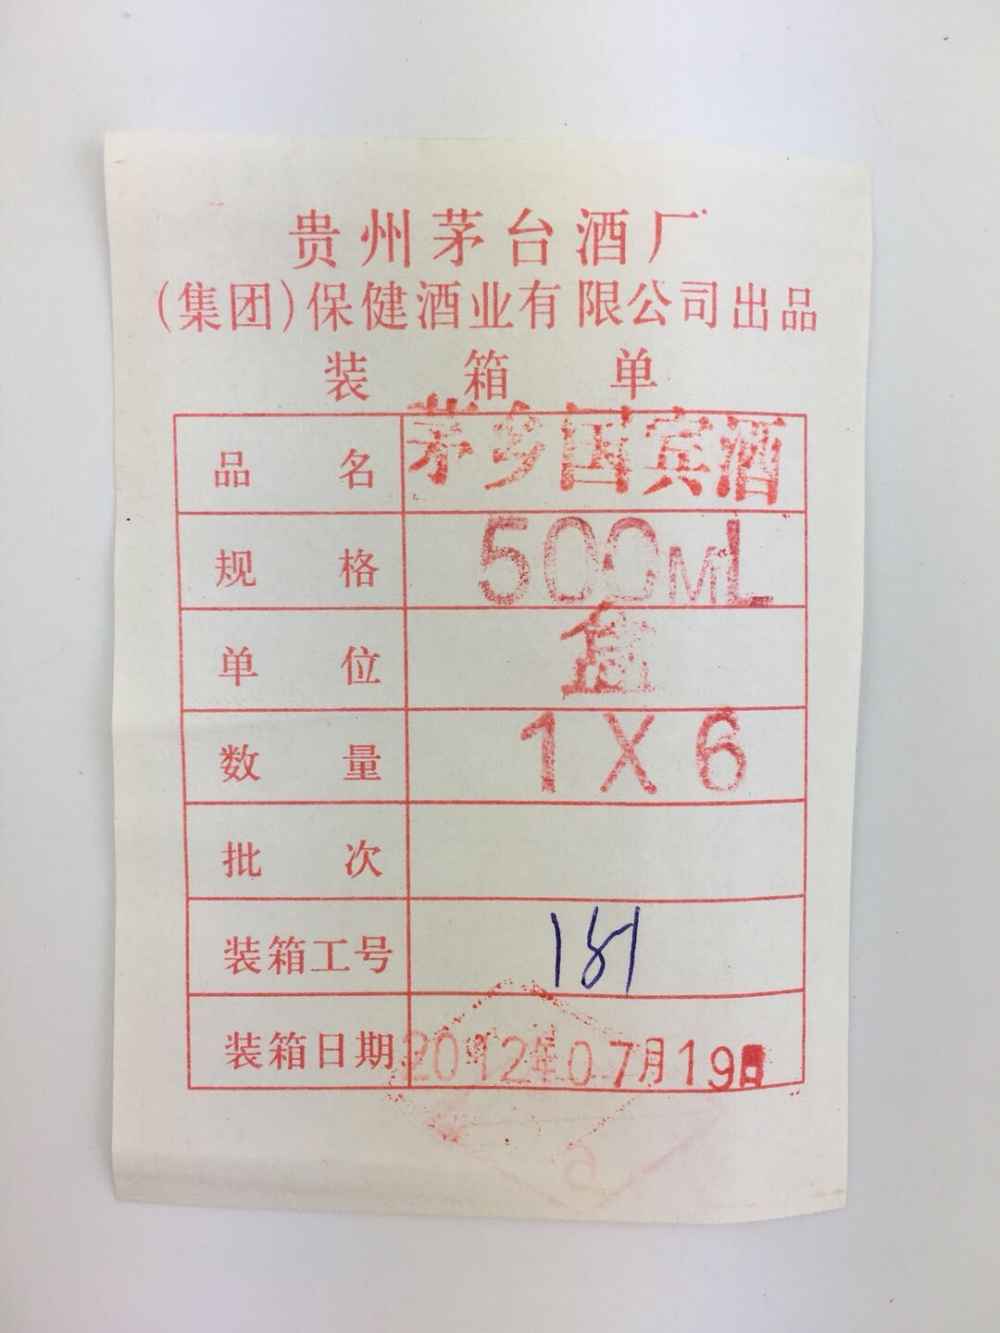 贵州茅台酒厂
(集团)保健酒业有限公司出品
装箱单
品名 茅乡国宾酒
规格 500ML
单位 盒
数量 1X6
批次
装箱工号 181
装箱日期 2012年07月19日